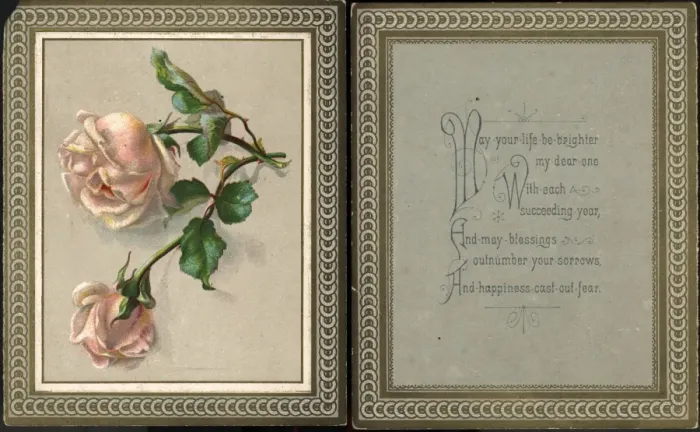 May·your·life·be·brighter
my dear one
With·each
succeeding·year,
And·may·blessings
outnumber·your·sorrows,
And·happiness·cast·out·fear.